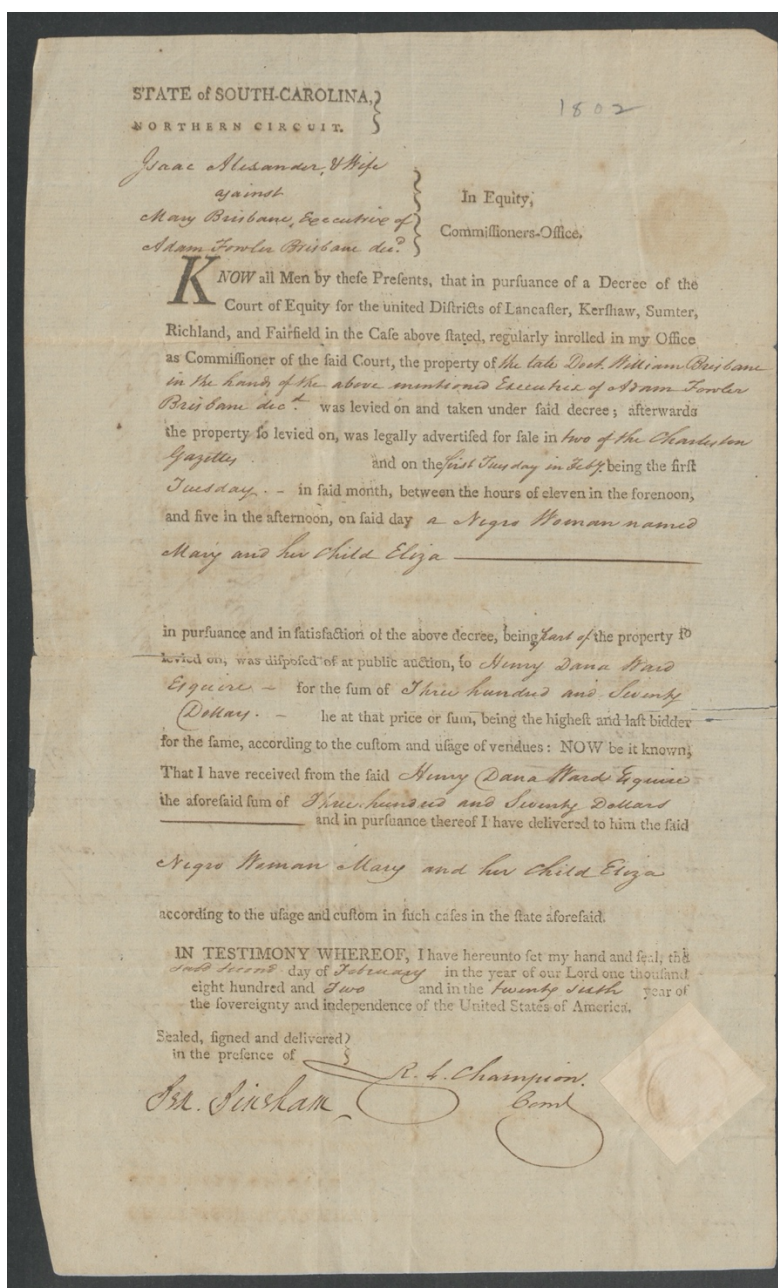 STATE of SOUTH-CAROLINA,
1802
NORTHERN CIRCUIT.
Isaac Alexander, & Wife
against
Mary Brisbane, Executrix of
Adam Fowler Brisbane decd.
In Equity,
Commissioners-Office.
KNOW all Men by these Presents, that in pursuance of a Decree of the
Court of Equity for the united Districts of Lancaster, Kershaw, Sumter,
Richland, and Fairfield in the Case above stated, regularly inrolled in my Office
as Commissioner of the said Court, the property of the late Doct. William Brisbane
in the hands of the above mentioned Executrix of Adam Fowler
Brisbane decd. was levied on and taken under said decree; afterwards
the property so levied on, was legally advertised for sale in two of the Charleston
Gazettes and on the first Tuesday in Feby. being the first
Tuesday. - in said month, between the hours of eleven in the forenoon,
and five in the afternoon, on said day a Negro Woman named
Mary and her Child Eliza
in pursuance and in satisfaction of the above decree, being part of the property so
levied on, was disposed of at public auction, to Henry Dana Ward
Esquire - for the sum of Three hundred and Seventy
Dollars. - he at that price or sum, being the highest and last bidder
for the same, according to the custom and usage of vendues: NOW be it known,
That I have received from the said Henry Dana Ward Esquire
the aforesaid sum of Three hundred and Seventy Dollars
and in pursuance thereof I have delivered to him the said
Negro Woman Mary and her Child Eliza
according to the usage and custom in such cases in the state aforesaid.
IN TESTIMONY WHEREOF, I have hereunto set my hand and seal, the
said second day of February in the year of our Lord one thousand
eight hundred and Two and in the twenty sixth year of
the sovereignty and independence of the United States of America.
Sealed, signed and delivered
in the presence of
R. L. Champion.
Comr